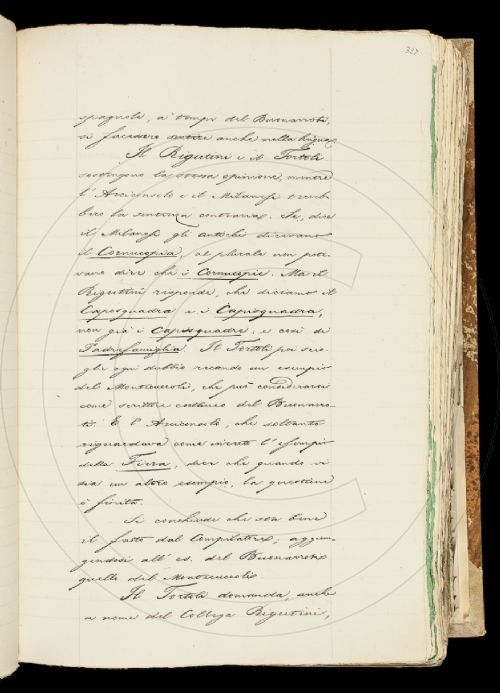 327.
spagnole, a' tempi del Buonarroti,
si facessero sentire anche nella lingua.
Il Rigutini e il Tortoli
sostengono la stessa opinione, mentre
l'Arciconsolo e il Milanesi
la sentenza contraria. Se, dice
il Milanesi gli antichi dicevano
il Cornucopia, al plurale non pote-
vano dire che i Cornucopie. Ma il
Rigutini risponde, che diciamo il
Caposquadra e i Caposquadra,
non già i Caposquadre, e così di
Padrefamiglia. Il Tortoli poi scio-
glie ogni dubbio recando un esempio
del Montecuccoli, che può considerarsi
come scrittore coetaneo del Buonarro-
ti. E l'Arciconsolo, che soltanto
riguardava come incerto l'esempio
della Fiera, dice che quando vi
sia un altro esempio, la questione
è finita.
Si conchiude che sta bene
il fatto dal Compilatore, aggiun-
gendosi all'es. del Buonarroti
quello del Montecuccoli.
Il Tortoli domanda, anche
a nome del Collega Rigutini,